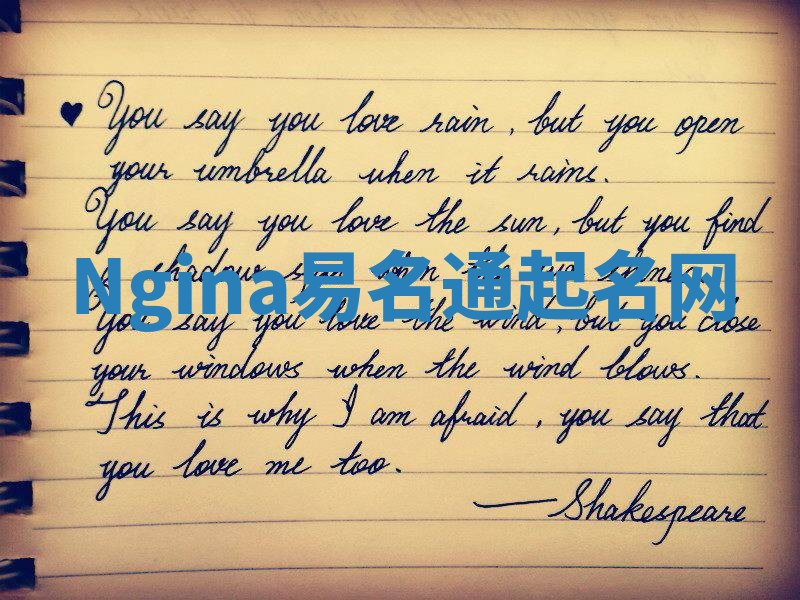 ♥ You say you love rain, but you open
your umbrella when it rains.
You say you love the sun, but you find
a shadow spot when the sun shines.
Ngina易名通起名网
You say you love the wind, but you close
your windows when the wind blows.
This is why I am afraid, you say that
you love me too.
—Shakespeare